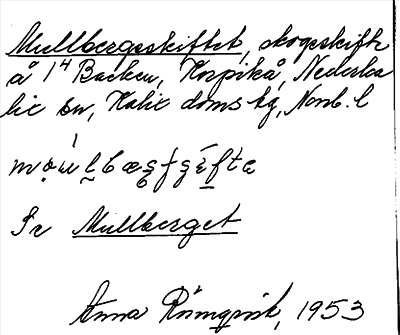 Mullbergsskiftet, skogsskifte
å 1⁴ Backen, Korpikå, Nederka
lix sn, Kalix doms hg, Nonb. l
Se Mullberget
Anna Rönnqvist, 1953